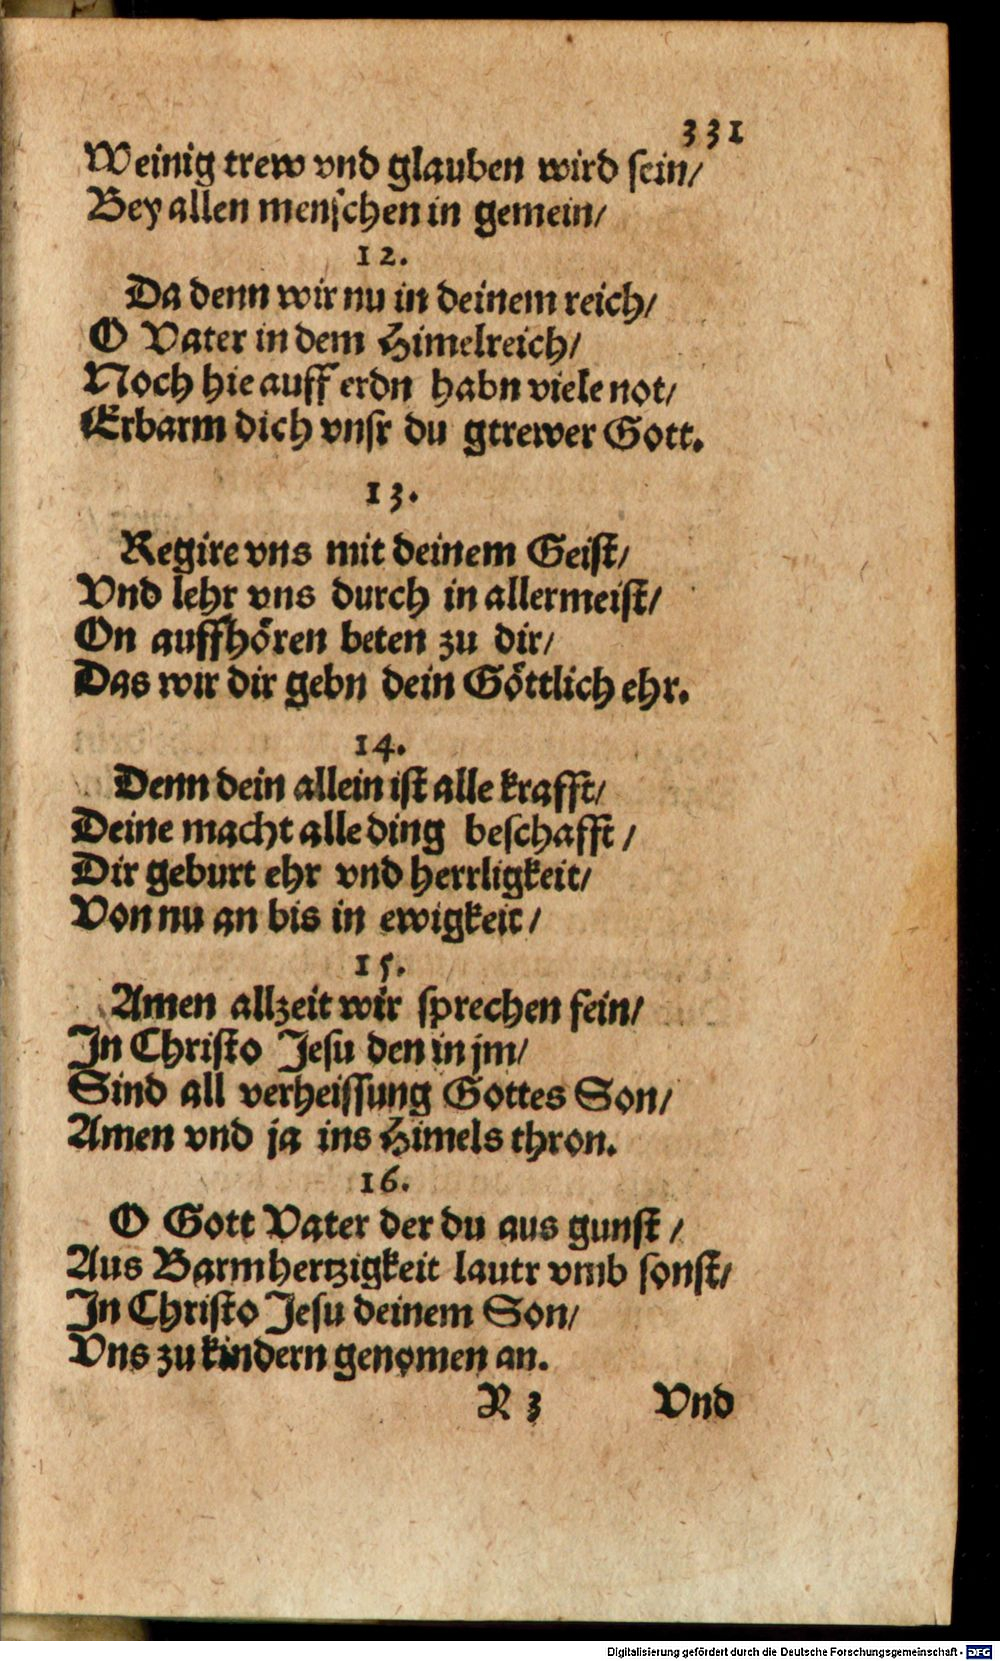 331
Weinig trew vnd glauben wird sein/
Bey allen menschen in gemein/
12.
Da denn wir nu in deinem reich/
O Vater in dem Himelreich/
Noch hie auff erdn habn viele not/
Erbarm dich vnsr du gtrewer Gott.
13.
Regire vns mit deinem Geist/
Vnd lehr vns durch in allermeist/
On auffhören beten zu dir/
Das wir dir gebn dein Göttlich ehr.
14.
Denn dein allein ist alle krafft/
Deine macht alle ding beschafft/
Dir geburt ehr vnd herrligkeit/
Von nu an bis in ewigkeit/
15.
Amen allzeit wir sprechen fein/
In Christo Jesu den in jm/
Sind all verheissung Gottes Son/
Amen vnd ja ins Himels thron.
16.
O Gott Vater der du aus gunst/
Aus Barmhertzigkeit lautr vmb sonst/
In Christo Jesu deinem Son/
Vns zu kindern genomen an.
R 3 Vnd
Digitalisierung gefördert durch die Deutsche Forschungsgemeinschaft - DFG